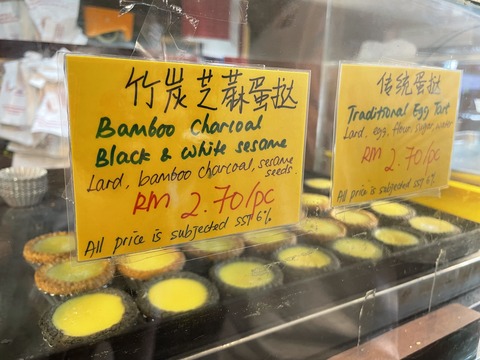 竹炭芝蔴蛋撻
Bamboo Charcoal
Black & White sesame
Lard, bamboo charcoal, sesame
seeds.
RM 2.70/pc
All price is subjected SST 6%
传统蛋撻
Traditional Egg Tart
Lard, egg, flour, sugar, water
RM 2.70/pc
All price is subjected SST 6%